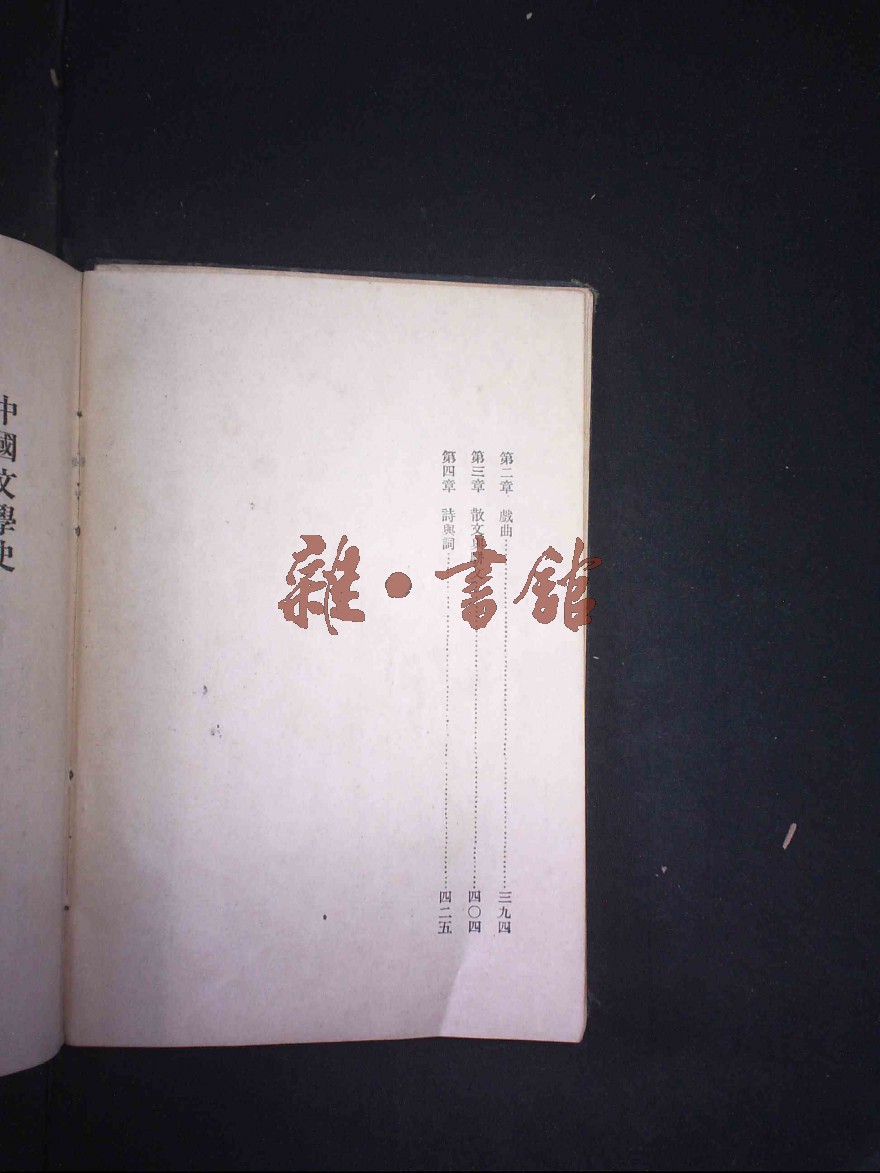 第二章 戲曲……三九四
第三章 散文……四〇四
第四章 詩與詞……四二五
中國文學史
雜·書館